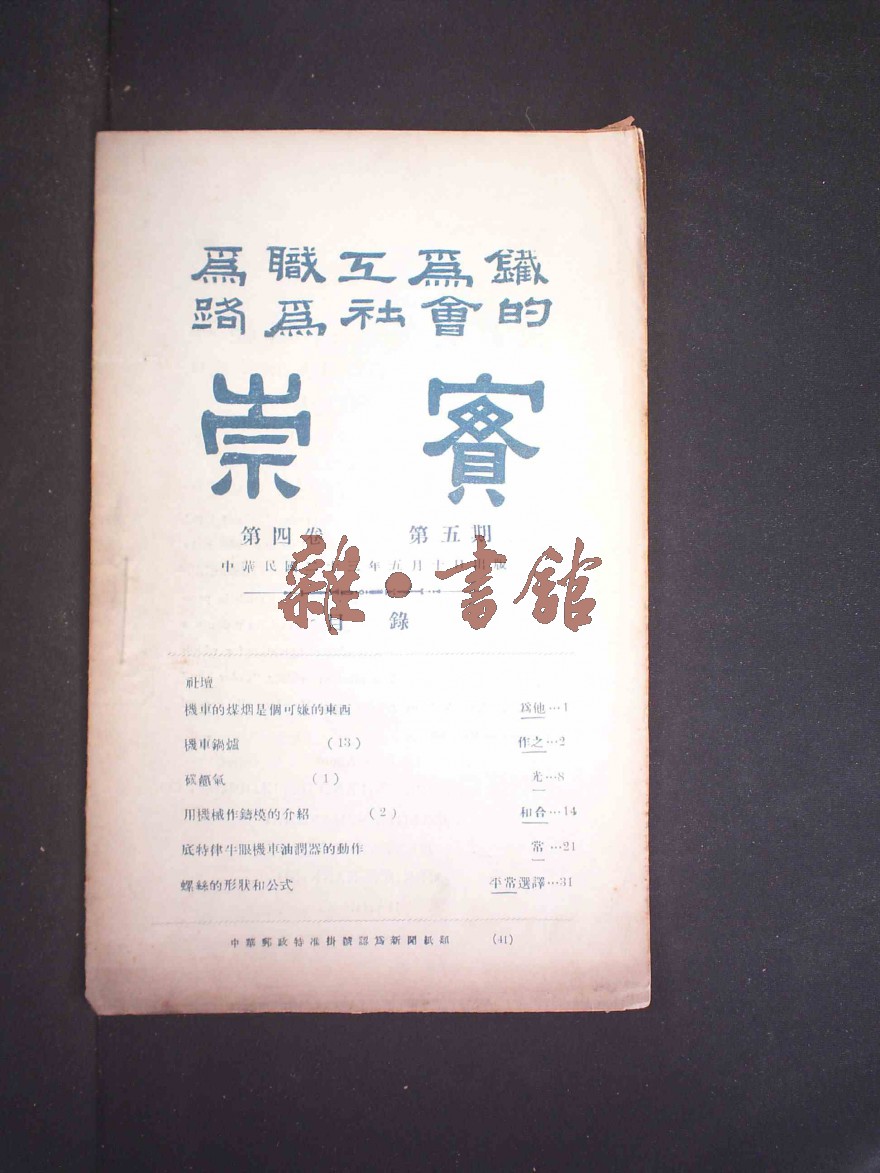 爲職工爲鐵
路爲社會的
崇實
第四卷 第五期
中華民國 三年五月十日出版
雜·書館
目錄
社壇
機車的煤烟是個可嫌的東西 爲他…1
機車鍋爐 (13) 作之…2
氣 (1) 光…8
用機械作鑄模的介紹 (2) 和合…14
底特律牛眼機車油潤器的動作 常…21
螺絲的形狀和公式 平常選譯…31
中華郵政特准掛號認爲新聞紙類 (41)